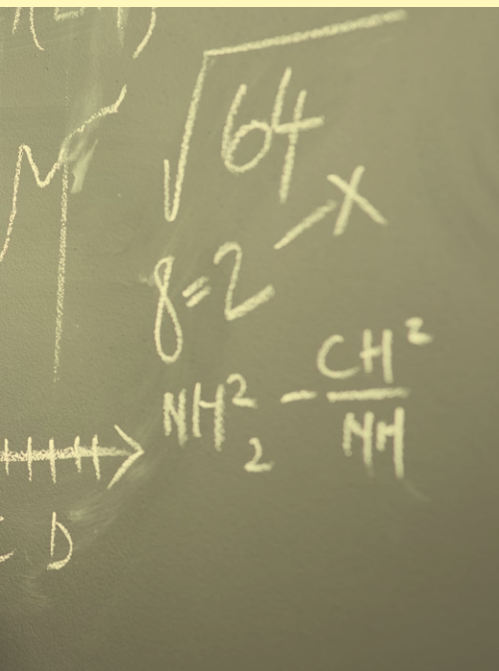 √64
8=2 X
NH²₂ - CH²/NH
D